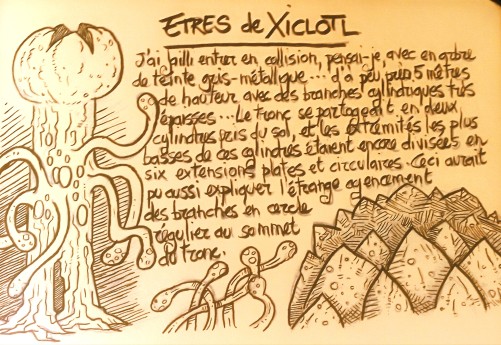 ETRES de XICLOTL
J'ai failli entrer en collision, pensai-je, avec en arbre
de teinte gris-métallique... d'a peu près 5 mètres
de hauteur avec des branches cylindriques très
épaisses... Le tronc se partageait en deux
cylindres près du sol, et les extrémités les plus
basses de ces cylindres étaient encore divisées en
six extensions plates et circulaires. Ceci aurait
pu aussi expliquer l'étrange agencement
des branches en cercle
régulier au sommet
du tronc.